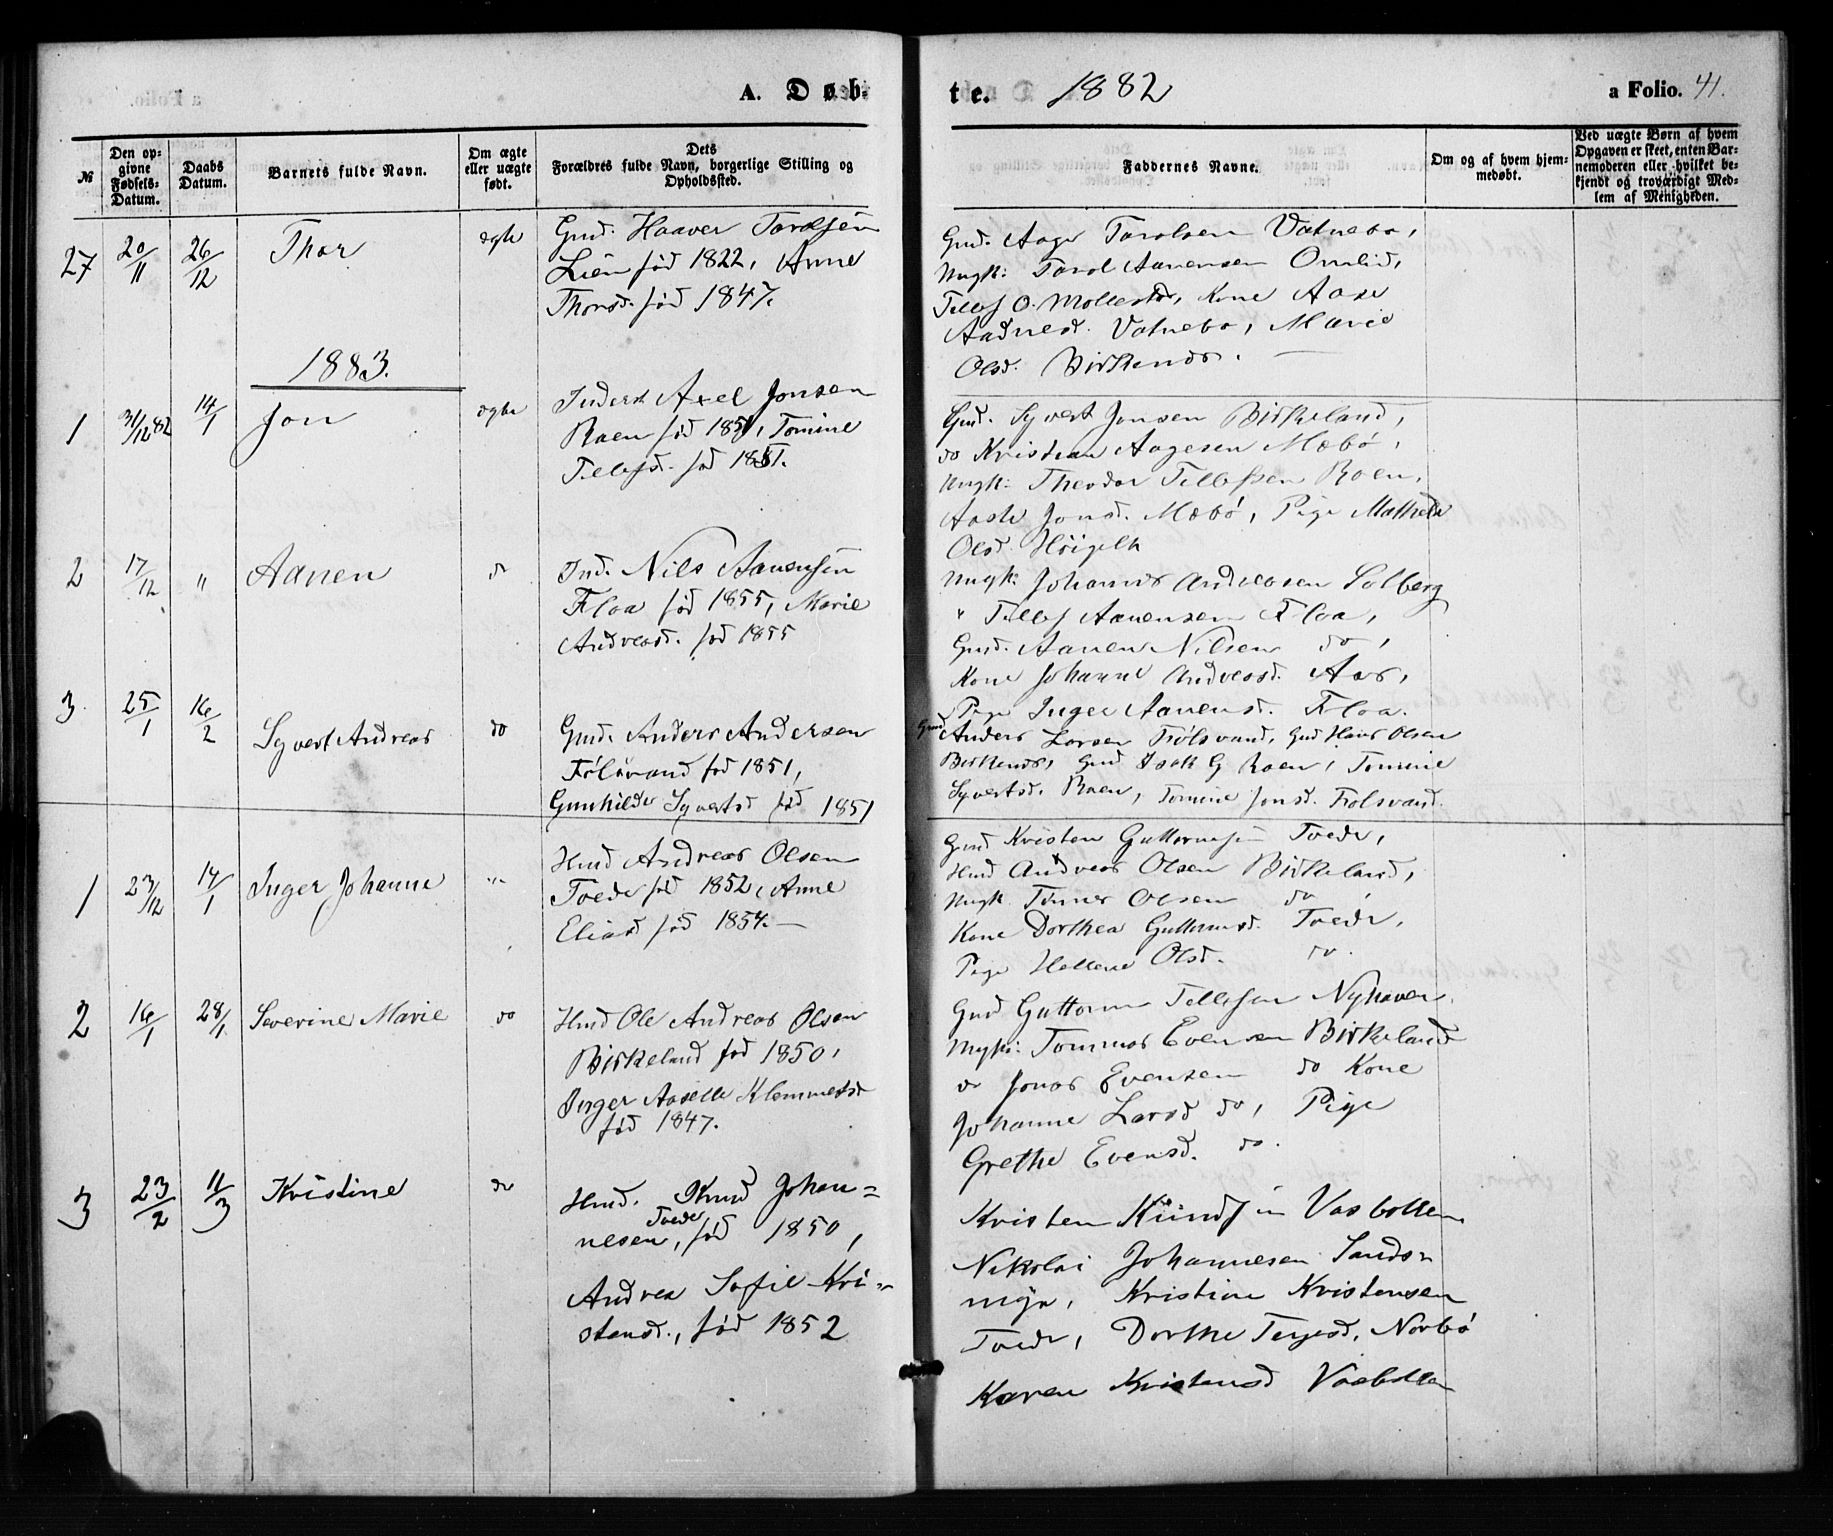 A. Døb-
te. 1882
a Folio. 41.
№
Den op-
givne
Fødsels-
Datum.
Daabs
Datum.
Barnets fulde Navn.
Om ægte
eller uægte
født.
Dets
Forældres fulde Navn, borgerlige Stilling og
Opholdssted.
Faddernes Navne.
Om og af hvem hjem-
medøbt.
Ved uægte Børn af hvem
Opgaven er skeet, enten Bar-
nemoderen eller hvilket be-
kjendt og troværdigt Med-
lem af Menigheden.
27 20/11 26/12 Thor ægte
Gmd. Haaver Tarolsen
Lien født 1822, Anne
Thorsd. fød 1847.
Gmd. Aage Tarolsen Vatnebo,
Ungk: Tarol Aanensen Omlid,
Tellef O. Mollestad, Kone Aase
Aadnesd. Vatnebo, Marie
Olsd. Birkenes.
1883.
1 31/12 82 14/1 Jon ægte
Inderst Axel Jonsen
Roen fød 1851, Tomine
Tellefsd. fød 1851.
Gmd. Syvert Jonsen Birkeland,
do Kristian Aagesen Mæbø,
Ungk: Theodor Tellefsen Roen,
Aaste Jonsd. Mæbø, Pige Mathilde
Olsd.
2 17/12 " Aanen do
Ind. Nils Aanensen
Floa fød 1855, Marie
Andreasd. fød 1855
Ungk: Johannes Andreasen Solberg
" Tellef Aanensen Floa,
Gmd. Aanen Nilsen do,
Kone Johanne Andreasd. Aas,
Pige Inger Aanensd. Floa.
3 25/1 16/2 Syvert Andreas do
Gmd. Anders Andersen
Følsvand fød 1851,
Gunhilde Syvertsd fød 1851
Gmd Anders Larsen Følsvand, Gmd Hans Olsen
Birkenes, Gmd Isak G Roen, Tomine
Syvertsd. Roen, Tomine Jonsd. Følsvand.
1 23/12 14/1 Inger Johanne "
Hmd Andreas Olsen
Tvede fød 1852, Anne
Eliasd fød 1854.
Gmd Kristen Guttormsen Tvede,
Hmd Andreas Olsen Birkeland,
Ungk. Tønnes Olsen do
Kone Dorthea Guttormsd. Tvede,
Pige Hellene Olsd. do.
2 16/1 28/1 Severine Marie do
Hmd Ole Andreas Olsen
Birkeland fød 1850,
Inger Aaselle Klemmetsd
fød 1847.
Gmd Guttorm Tellefsen Nyhaven,
Ungk: Tommas Evensen Birkeland
do Jonas Evensen do Kone
Johanne Larsd do, Pige
Grethe Evensd. do.
3 23/2 11/3 Kristine do
Hmd. Knud Johan=
Tvede
nesen, fød 1850,
Andrea Sofie Kri=
stensd., fød 1852
Kristen Knudsen Vasbotten
Nikolai Johannesen Sands=
myr, Kristine Kristensen
Tvede, Dorthe Terjesd. Norbø
Karen Kristensd Vasbotten